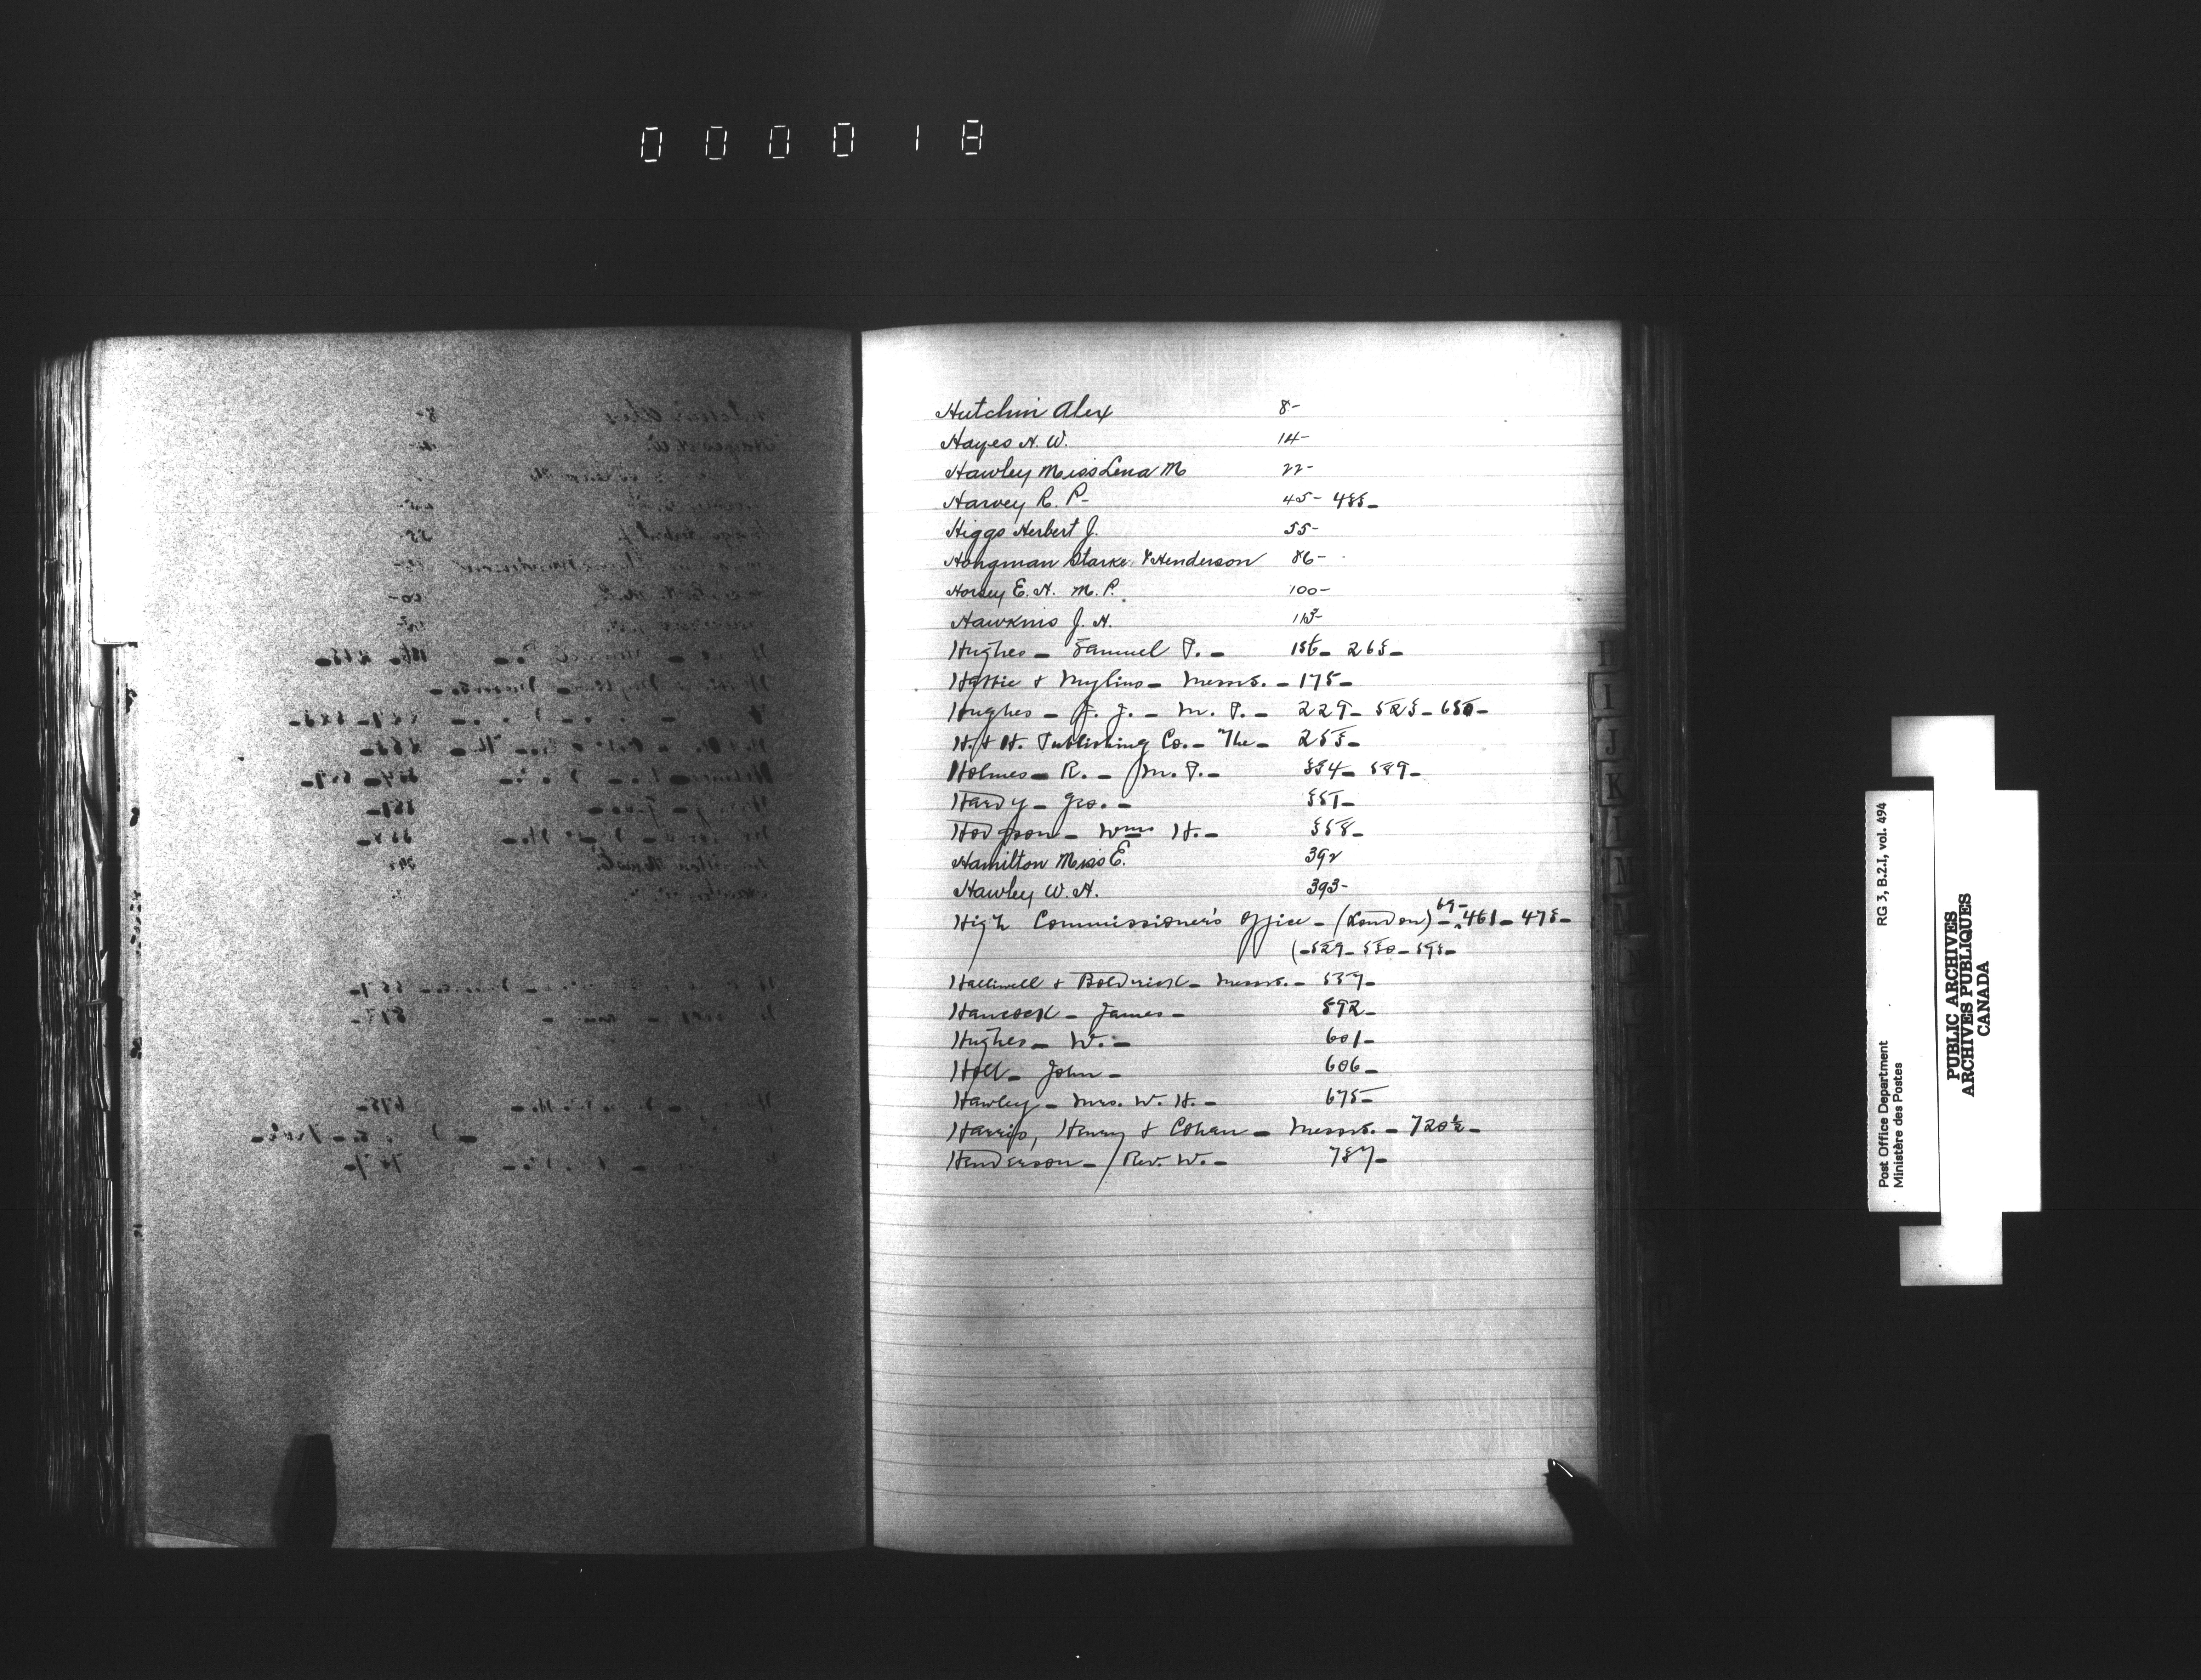 000018
Hutchin Alex 8-
Hayes H. W. 14-
Hawley Miss Lena M 22-
Harvey R. P- 45-
Higgs Herbert J. 55-
Hongman Starke & Henderson 86-
Horsey E. H. M. P. 100-
Hawkins J. H.
Hughes - Samuel P. - 186- 265-
Hattie & Mylius - Messrs. - 175-
Hughes - J. J. - M. P. - 229- 525-
H. & H. Publishing Co. - The -
Holmes - R. - M. P. -
Hardy - Geo. -
Hodgson - Wm H. -
Hamilton Miss E. 392
Hawley W. H. 393-
High Commissioner's Office - (London) - 69- 461- 475-
Halliwell & Boldrick - Messrs. - 537-
Hancock - James - 592-
Hughes - W. - 601-
Holl - John - 606-
Hawley - Mrs. W. H. - 675-
Harris, Henry & Cohan - Messrs. - 720½-
Henderson - Rev. W. - 787-
I
J
K
L
M
N
O
Post Office Department
Ministère des Postes
RG 3, B.2.I, vol. 494
PUBLIC ARCHIVES
ARCHIVES PUBLIQUES
CANADA